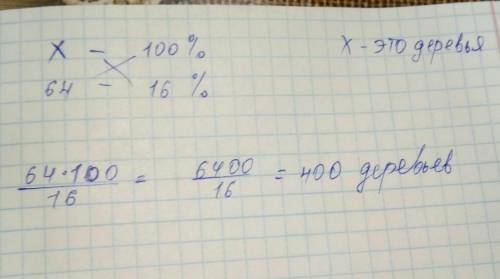 X - 100% X - это деревья
64 - 16%
64·100/16 = 6400/16 = 400 деревьев